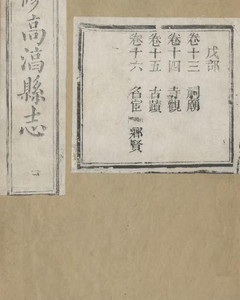 戊部
卷十三 祠廟
卷十四 寺觀
卷十五 古蹟
卷十六 名宦 鄉賢
修高淳縣志